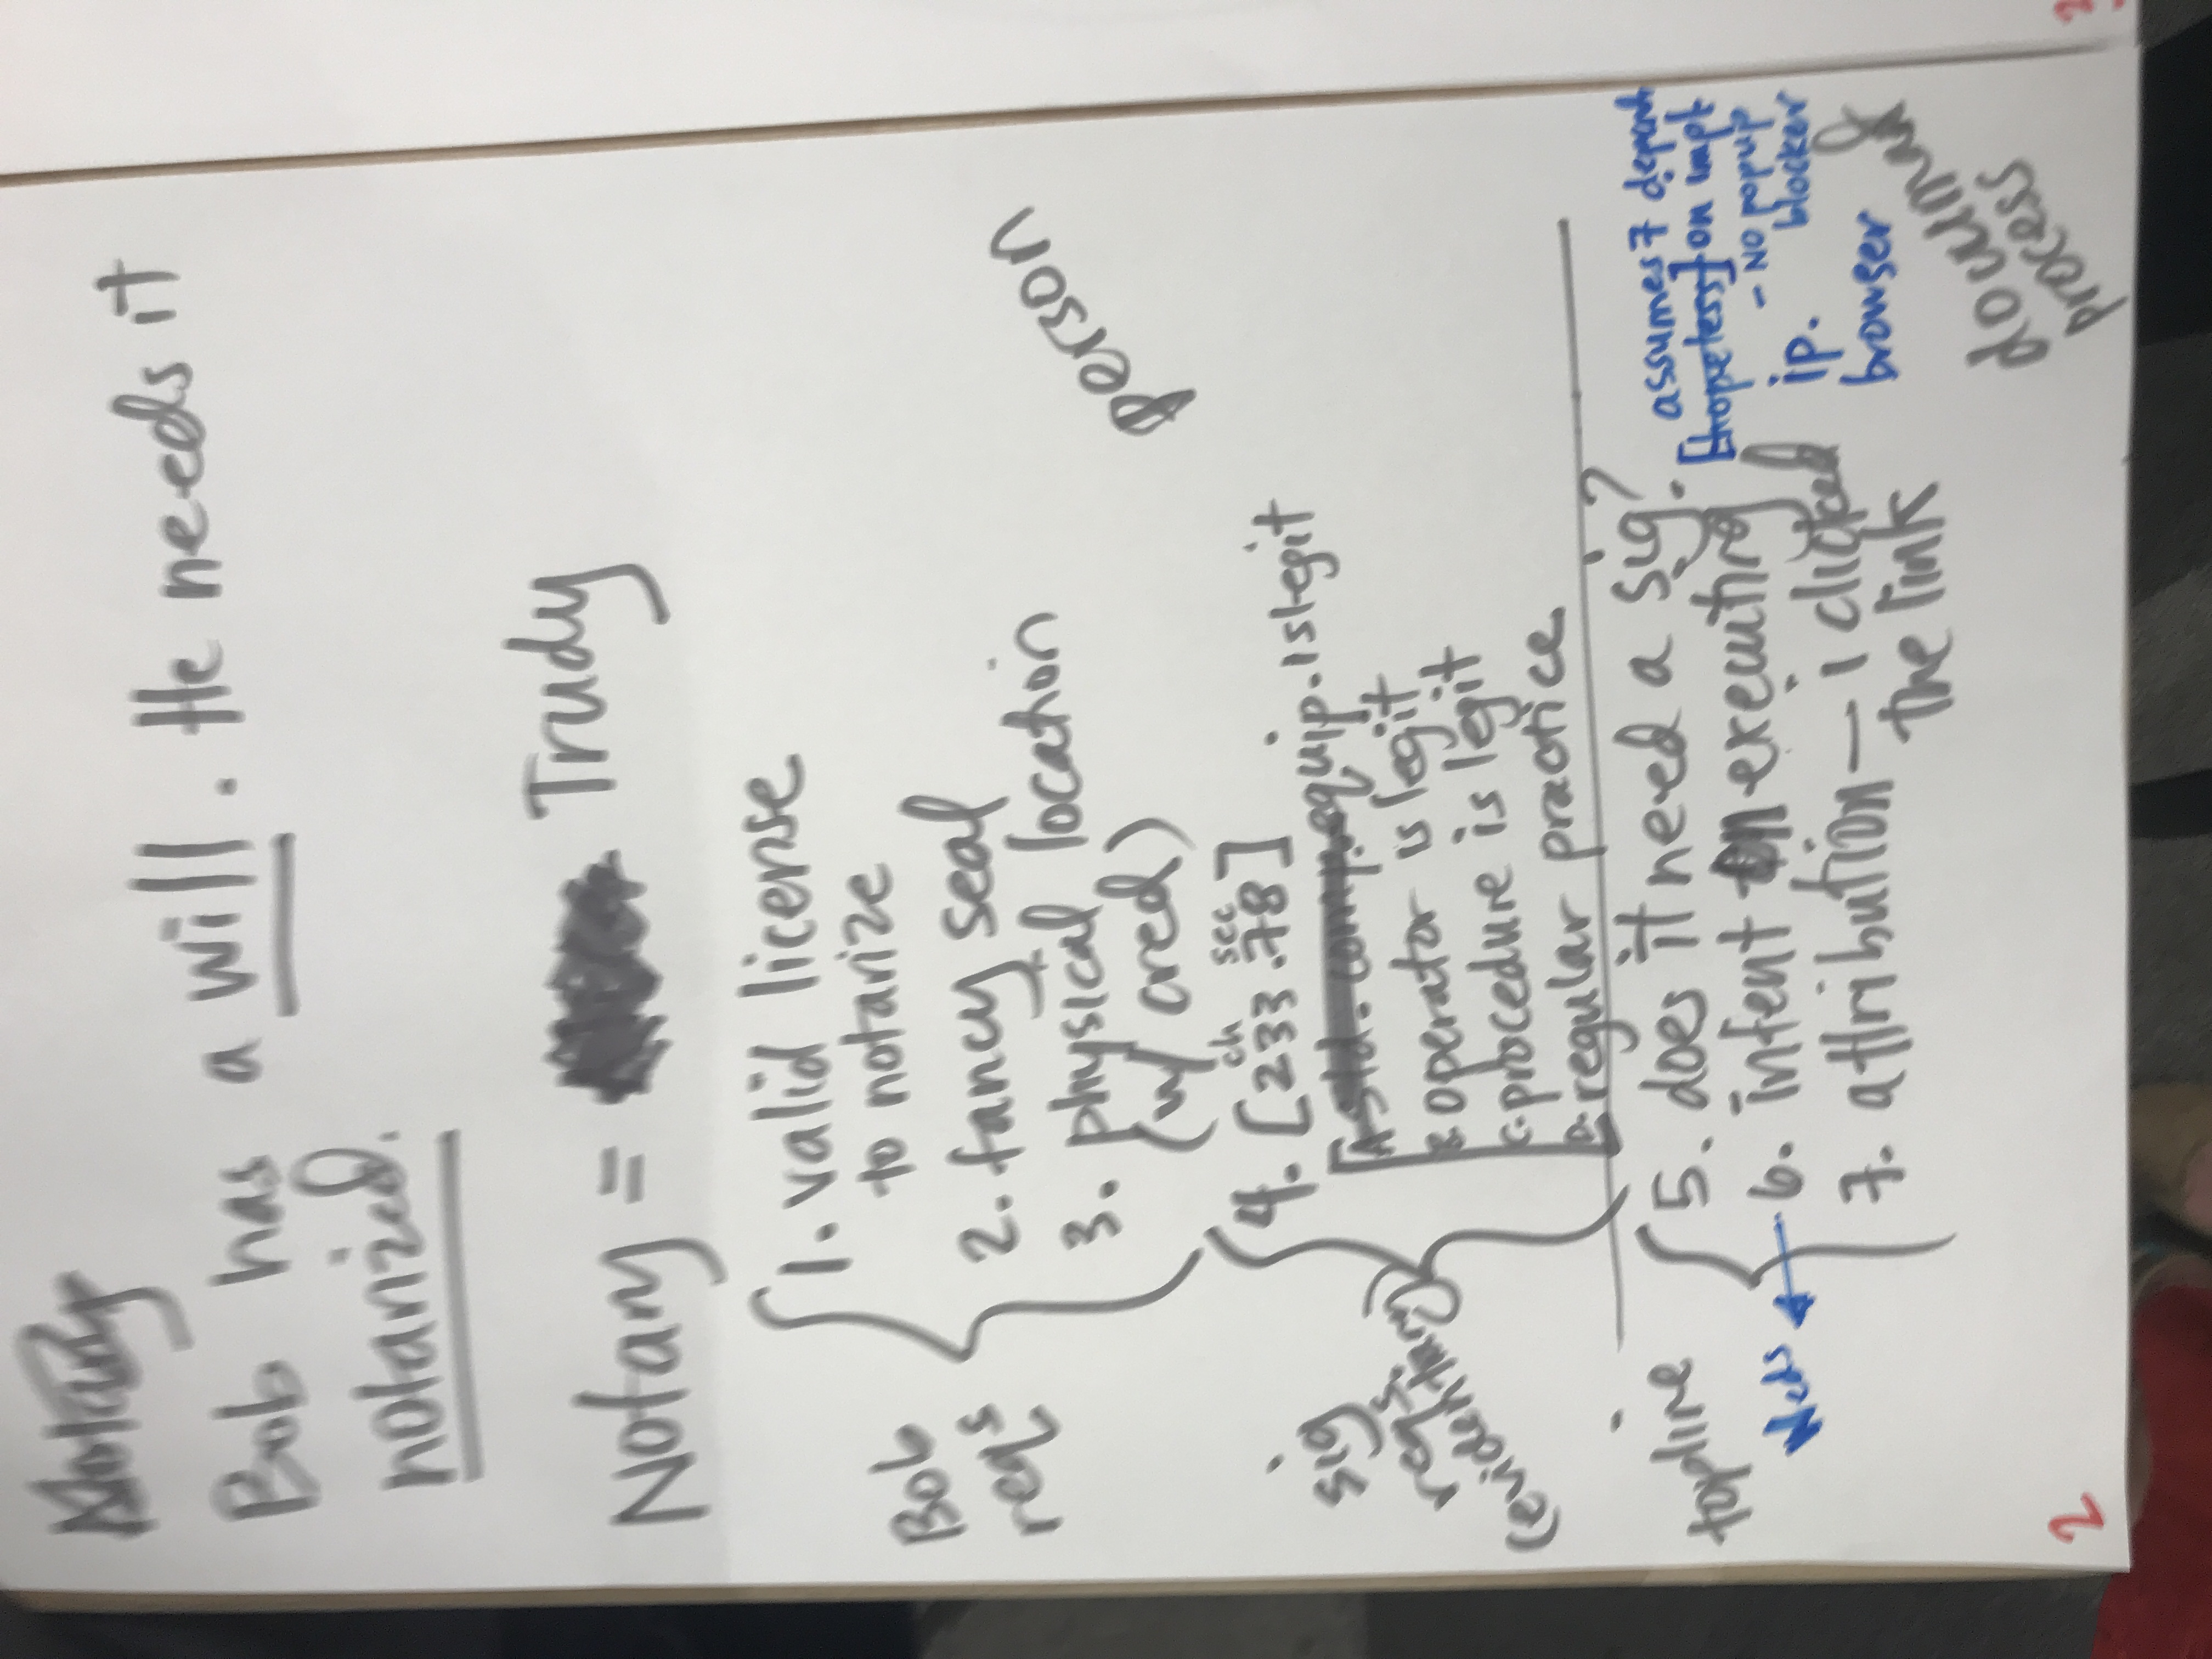 Notary
Bob has a will. He needs it
notarized.
Notary = Trudy
Bob
reqs
1. valid license
to notarize
2. fancy seal
3. physical location
(w/ cred)
person
sig
reqs.
(evidentiary)
ch sec
4. [233.78]
A std. comp. equip. is legit
B. operator is legit
C. procedure is legit
D. regular practice
topline
5. does it need a sig?
6. intent on executing
7. attribution — i clicked
the link
Weds
assumes 7 depends
[hopeless] on impt
- NO popup
blocker
ip.
browser
document
process
2